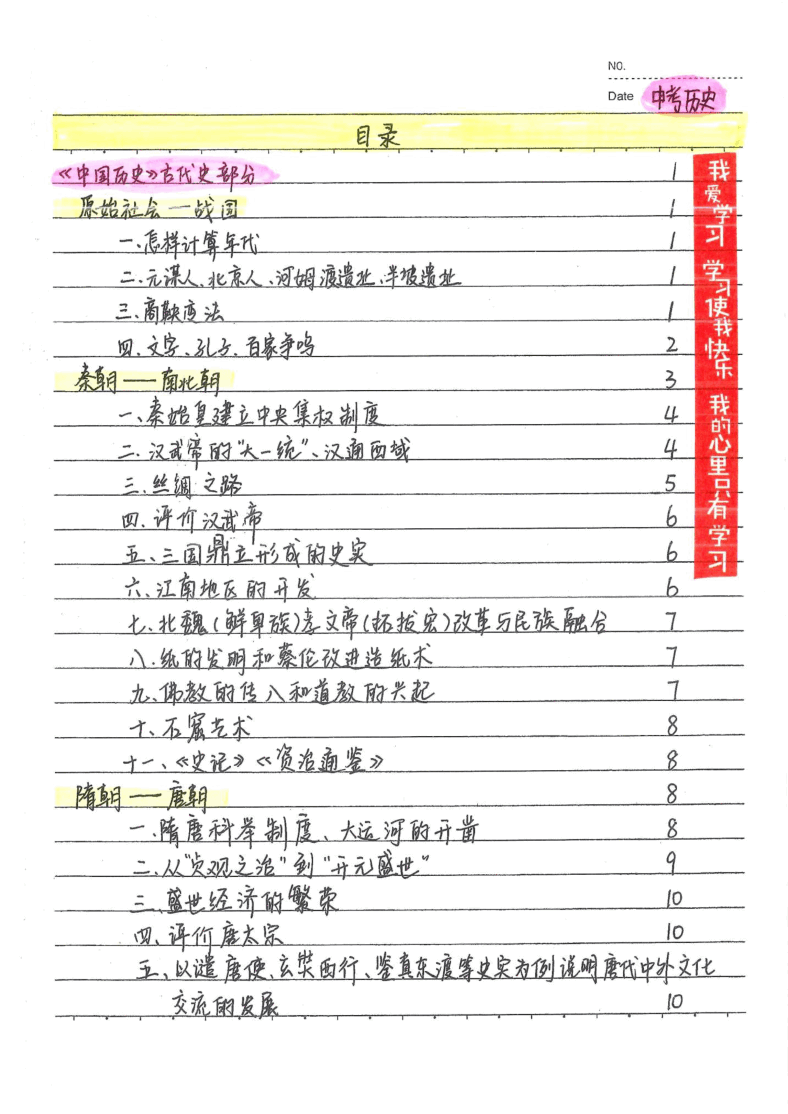 NO.
Date 中考历史
目录
《中国历史》古代史部分 1
原始社会—战国 1
一、怎样计算年代 1
二、元谋人、北京人、河姆渡遗址、半坡遗址 1
三、商鞅变法 1
四、文字、孔子、百家争鸣 2
秦朝——南北朝 3
一、秦始皇建立中央集权制度 4
二、汉武帝的"大一统"、汉通西域 4
三、丝绸之路 5
四、评价汉武帝 6
五、三国鼎立形成的史实 6
六、江南地区的开发 6
七、北魏(鲜卑族)孝文帝(拓拔宏)改革与民族融合 7
八、纸的发明和蔡伦改进造纸术 7
九、佛教的传入和道教的兴起 7
十、石窟艺术 8
十一、《史记》《资治通鉴》 8
隋朝——唐朝 8
一、隋唐科举制度、大运河的开凿 8
二、从"贞观之治"到"开元盛世" 9
三、盛世经济的繁荣 10
四、评价唐太宗 10
五、以遣唐使、玄奘西行、鉴真东渡等史实为例说明唐代中外文化
交流的发展 10
我爱学习 学习使我快乐 我的心里只有学习